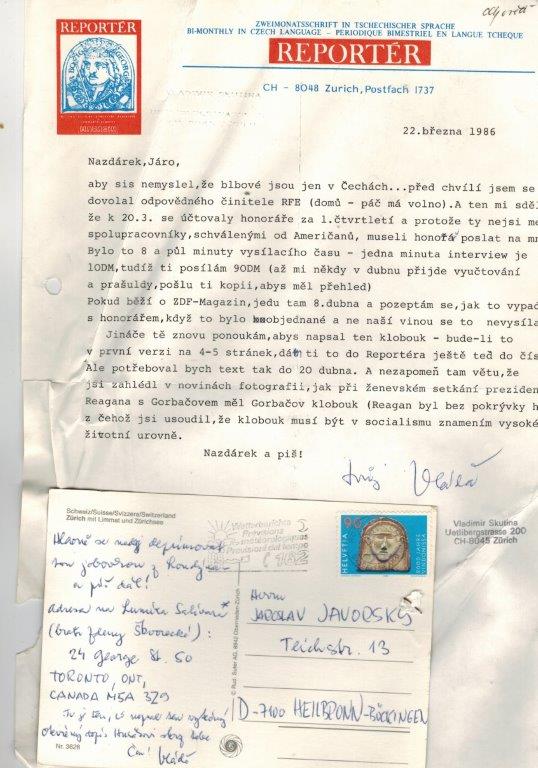 REPORTÉR
ZWEIMONATSSCHRIFT IN TSCHECHISCHER SPRACHE
BI-MONTHLY IN CZECH LANGUAGE – PERIODIQUE BIMESTRIEL EN LANGUE TCHEQUE
REPORTÉR
CH - 8048 Zurich, Postfach 1737
22.března 1986
Nazdárek, Járo,
aby sis nemyslel,že blbové jsou jen v Čechách...před chvílí jsem se
dovolal odpovědného činitele RFE (domů - páč má volno).A ten mi sděl
že k 20.3. se účtovaly honoráře za 1.čtvrtletí a protože ty nejsi me
spolupracovníky,schválenými od Američanů, museli honorář poslat na mn
Bylo to 8 a půl minuty vysílacího času - jedna minuta interview je
10DM,tudíž ti posílám 90DM (až mi někdy v dubnu přijde vyučtování
a prašuldy,pošlu ti kopii,abys měl přehled)
Pokud běží o ZDF-Magazin,jedu tam 8.dubna a pozeptám se,jak to vypad
s honorářem,když to bylo objednané a ne naší vinou se to nevysíla
Jináče tě znovu ponoukám,abys napsal ten klobouk - bude-li to
v první verzi na 4-5 stránek,dám ti to do Reportéra ještě teď do čís
Ale potřeboval bych text tak do 20 dubna. A nezapomeň tam větu,že
jsi zahlédl v novinách fotografii,jak při ženevském setkání preziden
Reagana s Gorbačovem měl Gorbačov klobouk (Reagan byl bez pokrývky h
z čehož jsi usoudil,že klobouk musí být v socialismu znamením vysoké
životní urovně.
Nazdárek a piš!
Vláďa
Vladimir Skutina
Uetlibergstrasse 200
CH-8045 Zürich
Schweiz/Suisse/Svizzera/Switzerland
Zürich mit Limmat und Zürichsee
Wetterberichte
Prévisions
météorologiques
Previsioni del tempo
162
HELVETIA 90
2000 JAHRE
VINDONISSA
Hlavně se nedej deprimovat
z
a piš dál!
adresa na
(bratr Škvorecké):
24 George St. 50
TORONTO, ONT,
CANADA M5A 3Z9
Vláďa
Nr. 3628
© Rud. Suter AG, 8942 Oberrieden-Zürich
Herrn
JAROSLAV JAVORSKÝ
Teichstr. 13
D-7100 HEILBRONN-BÖCKINGEN